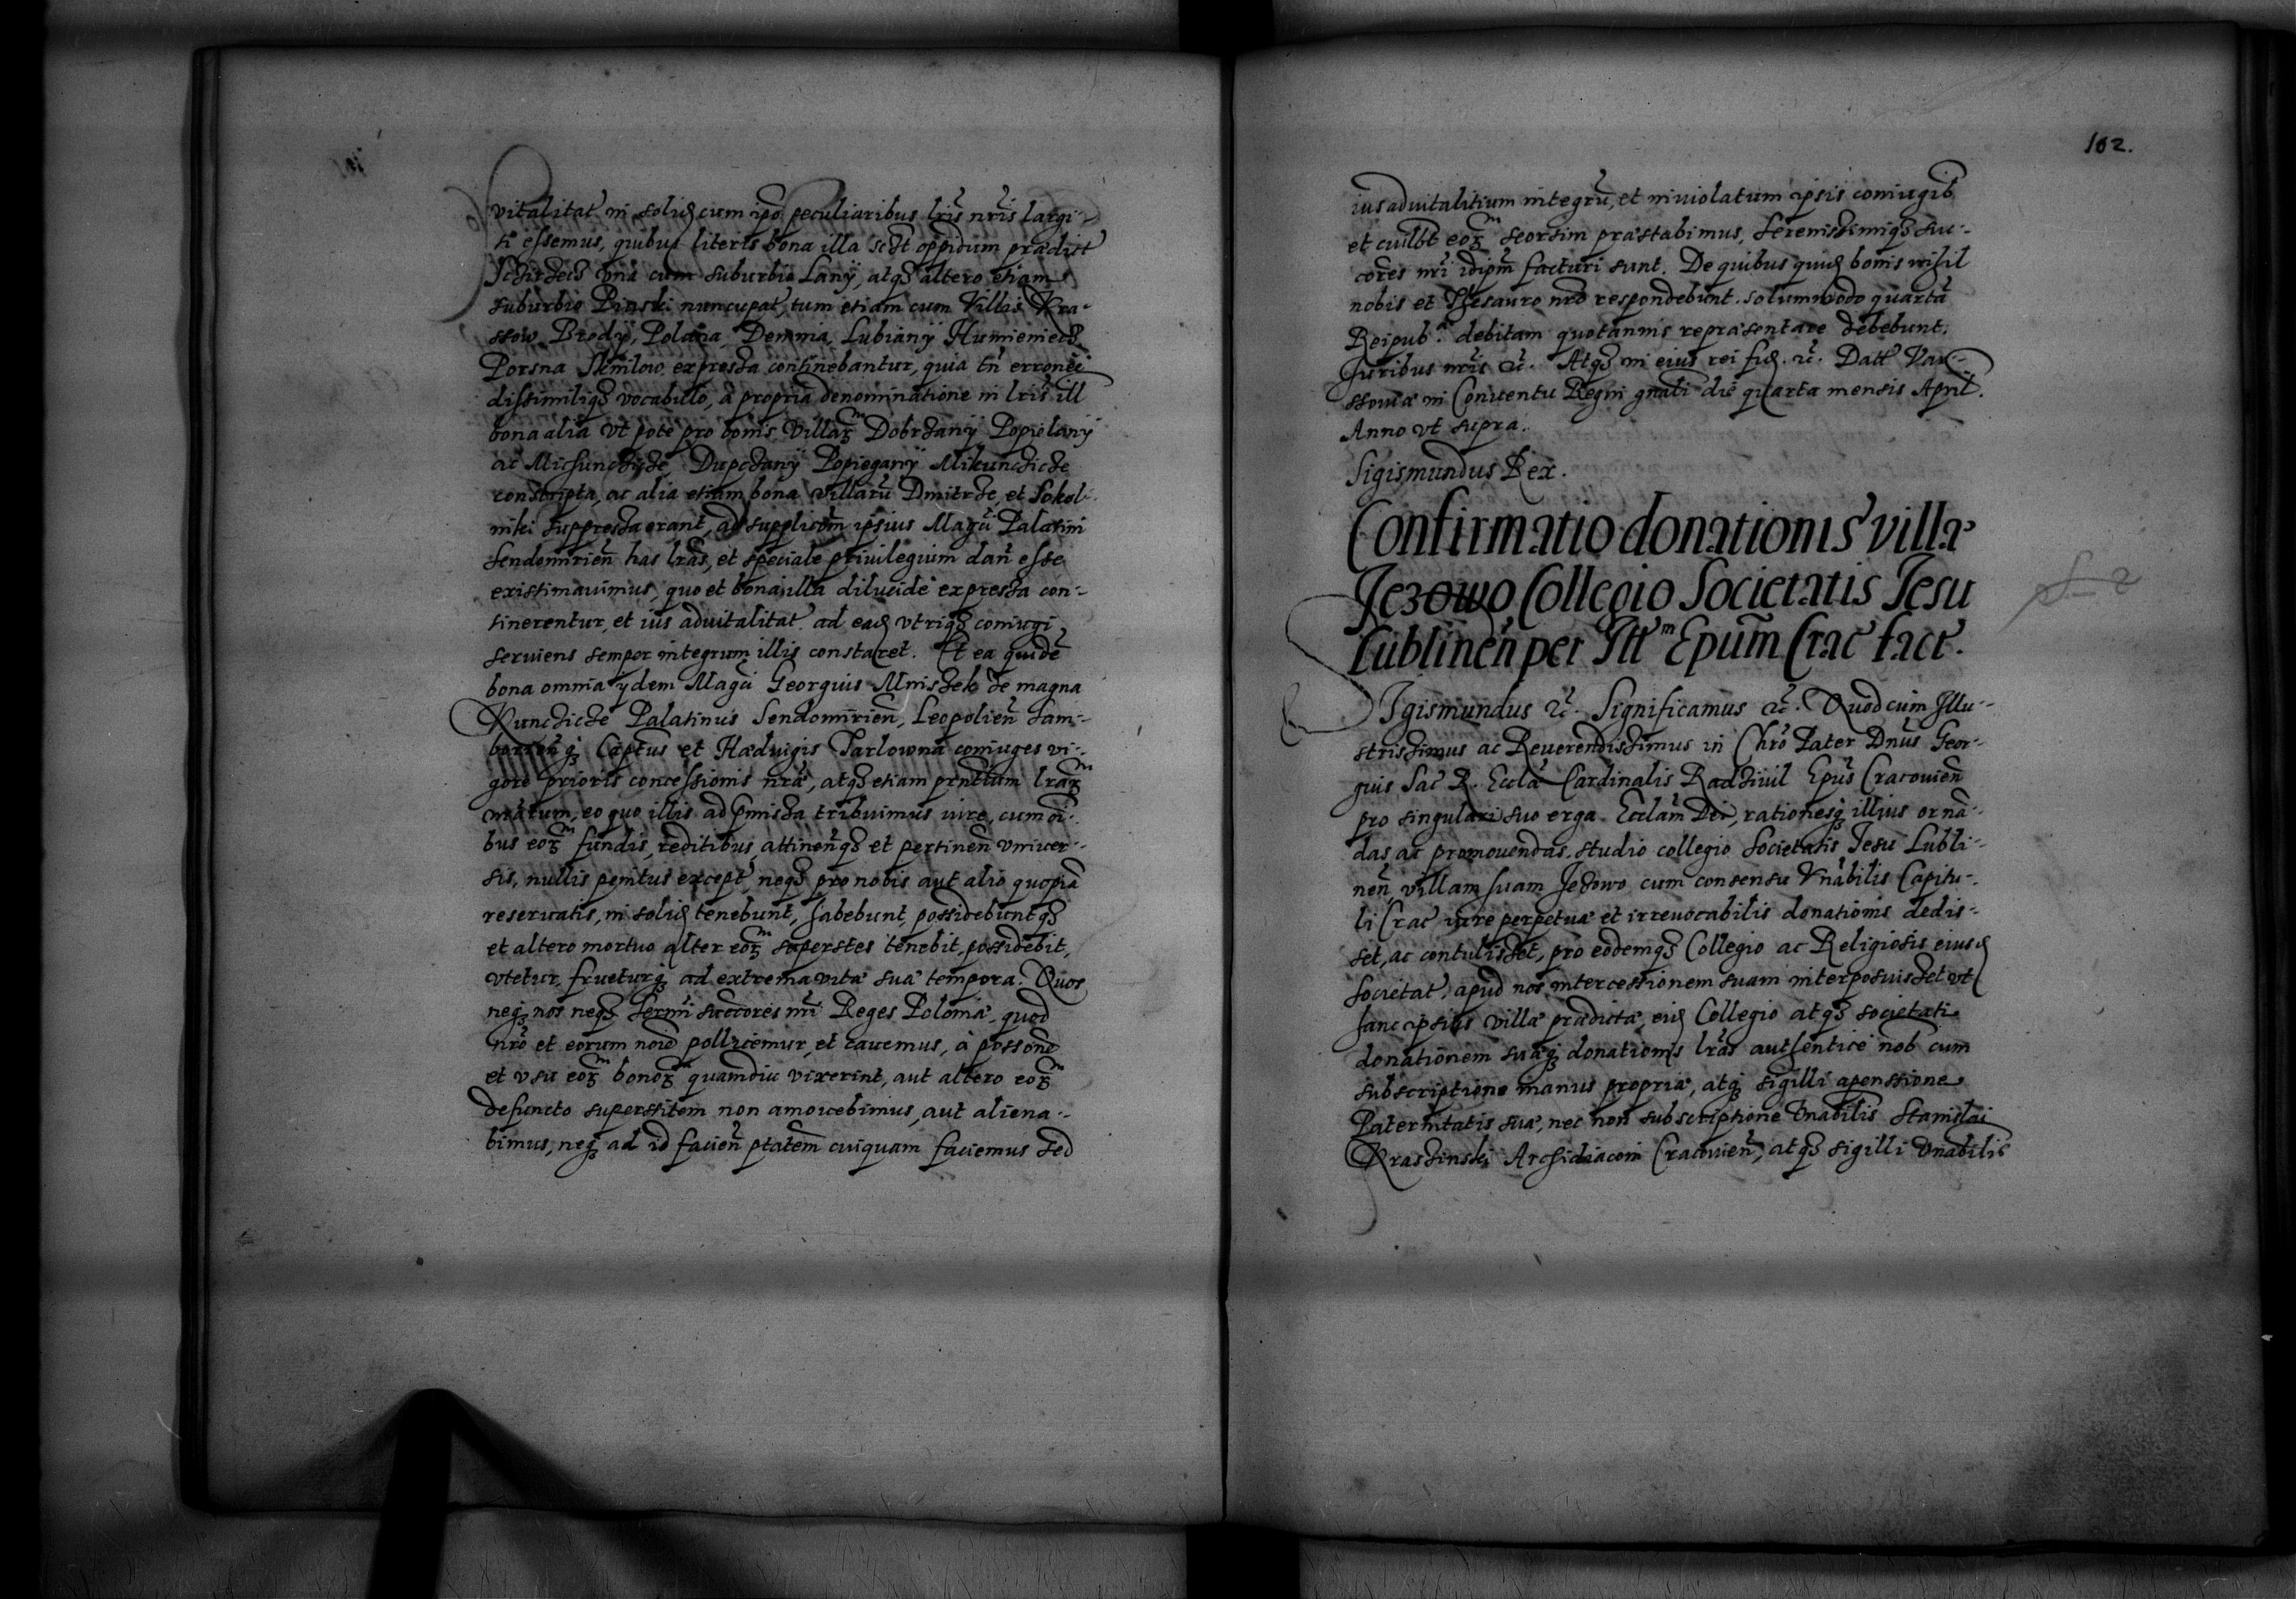 vitalitat in solid cum ipo peculiaribus lris nris largi-
ti essemus, quibus literis bona illa sct oppidum prædict
Sczirzecz vna cum suburbio Lany, atq3 altero etiam
suburbio Pinski nuncupat, tum etiam cum Villis Kra-
ssow Brody, Polana Demnia, Lubiany Humieniecz
Porsna Semilow expressa continebantur, quia tn errone
dissimiliq3 vocabulo, à propria denominatione in lris ill
bona alia vt pote pro bonis Villar Dobrzany Popielany
ac Michunczicze, Dupczany Popiegany Mikunczicze
conscripta, ac alia etiam bona Villaru Dmitrze, et Sokol-
niki suppressa erant, ad supplicom ipsius Magci Palatini
Sendomirien has lras, et speciale priuilegium dan esse
existimauimus, quo et bona illa dilucidè expressa con-
tinerentur, et ius aduitalitat ad ead vtriq3 coniugi
seruiens semper integrum illis constaret. Et ea quidē
bona omnia ydem Magci Georgius Mniszek de magna
Kunczicze Palatinus Sendomirien, Leopolien Sam-
borienq3 Captus et Hæduigis Tarlowna coniuges vi-
gore prioris concessionis nræ, atq3 etiam pntium lrar
nrarum, eo quo illis ad pmissa tribuimus iure, cum oi-
bus eor fundis, reditibus, attinen q3 et pertinen vniuer-
sis, nullis penitus except, neq3 pro nobis aut alio quopiā
reseruatis, in solid tenebunt, habebunt, possidebuntq3
et altero mortuo alter eor superstes tenebit, possidebit,
vtetur, frueturq3 ad extrema vitæ suæ tempora. Quos
neq3 nos neq3 Sermi succores nri Reges Poloniæ, quod
nro et eorum noie pollicemur, et cauemus, à possone
et vsu eor bonor quamdiu vixerint, aut altero eor
defuncto superstitem non amouebimus, aut aliena-
bimus, neq3 ad id facien ptatem cuiquam faciemus sed
102.
ius aduitalitium integrū, et inuiolatum ipsis coniugib
et cuilbt eor seorsim præstabimus, Serenissimiq3 suc-
cores nri idipm facturi sunt. De quibus quid bonis nihil
nobis et Thesauro nro respondebunt. solummodo quartā
Reipub. debitam quotannis repræsentare debebunt.
Juribus nris &c. Atq3 in eius rei fid. &c. Datt Var-
ssouiæ in Conuentu Regni gnali die quarta mensis April.
Anno vt supra.
Sigismundus Rex.
Confirmatio donationis villæ
Jezowo Collegio Societatis Jesu
Lublinen per Ill m Epum Crac fact.
Sigismundus &c. Significamus &c. Quod cum Illu-
strissimus ac Reuerendissimus in Chro Pater Dnus Geor-
gius Sac R. Eccla Cardinalis Radziuil Epus Cracouien
pro singulari suo erga Ecclam Dei, rationesq3 illius ornā-
das ac promouendas, studio collegio Societatis Jesu Lubli-
nen, villam suam Jezowo cum consensu Vnabilis Capitu-
li Crac iure perpetuæ et irreuocabilis donationis dedis-
set, ac contulisset, pro eodemq3 Collegio ac Religiosis eiusd
Societat, apud nos intercessionem suam interposuisset vt
hanc ipsius villæ prædictæ, eid Collegio atq3 societati
donationem suaq3 donationis lras authentice nob cum
subscriptione manus propriæ, atq3 sigilli apenssione
Paternitatis suæ, nec non subscriptione Vnabilis Stanislai
Krasinski Archidiaconi Cracouien, atq3 sigilli Vnabilis